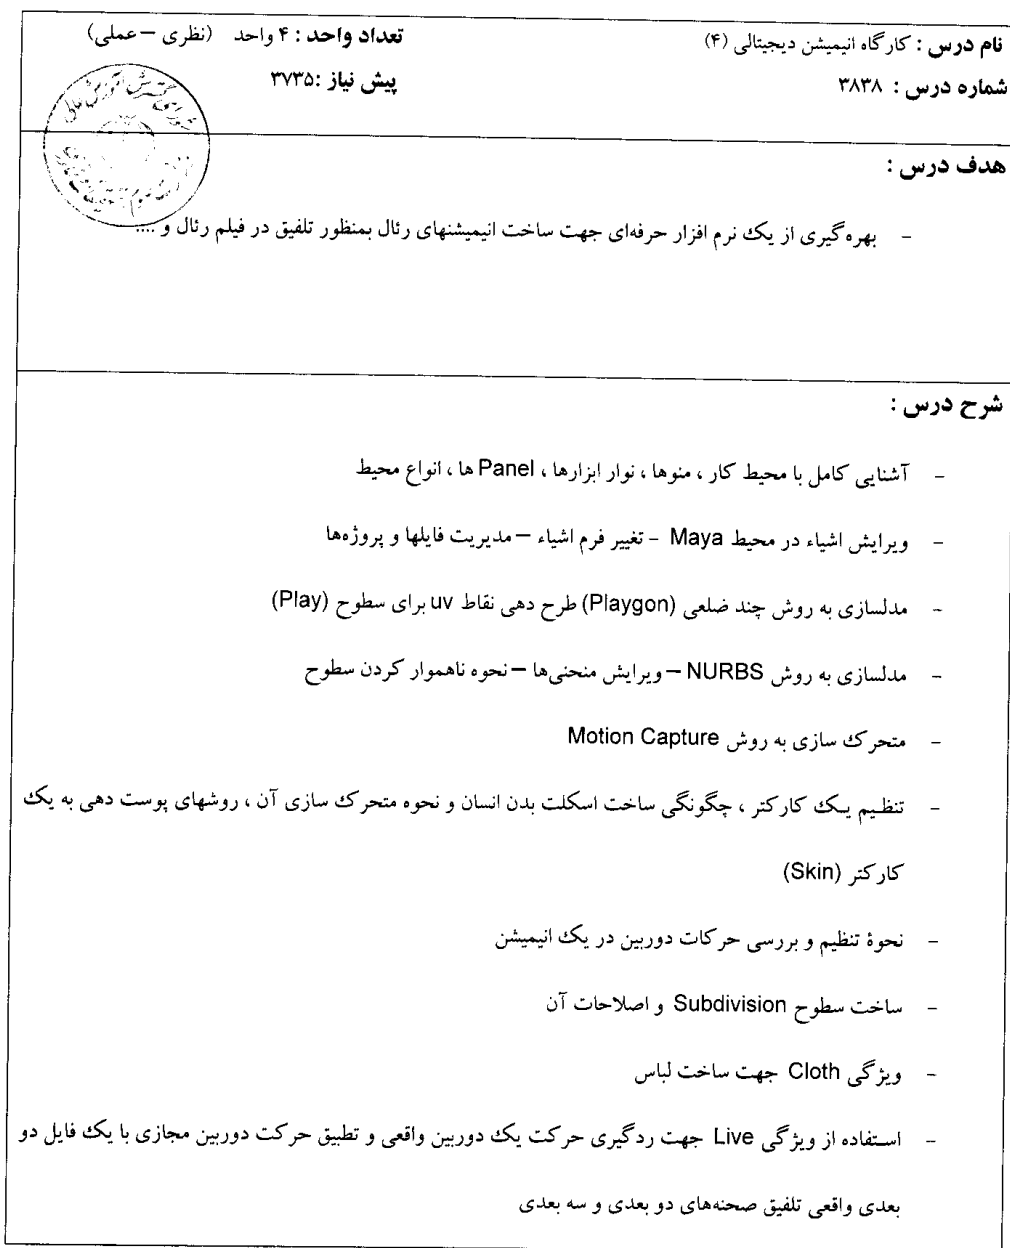 نام درس : کارگاه انیمیشن دیجیتالی (۴)
تعداد واحد : ۴ واحد (نظری – عملی)
شماره درس : ۳۸۳۸
پیش نیاز :۳۷۳۵
شورای گسترش آموزش عالی
هدف درس :
- بهره‌گیری از یک نرم افزار حرفه‌ای جهت ساخت انیمیشنهای رئال بمنظور تلفیق در فیلم رئال و ....
شرح درس :
- آشنایی کامل با محیط کار ، منوها ، نوار ابزارها ، Panel ها ، انواع محیط
- ویرایش اشیاء در محیط Maya - تغییر فرم اشیاء – مدیریت فایلها و پروژه‌ها
- مدلسازی به روش چند ضلعی (Playgon) طرح دهی نقاط uv برای سطوح (Play)
- مدلسازی به روش NURBS – ویرایش منحنی‌ها – نحوه ناهموار کردن سطوح
- متحرک سازی به روش Motion Capture
- تنظیم یک کارکتر ، چگونگی ساخت اسکلت بدن انسان و نحوه متحرک سازی آن ، روشهای پوست دهی به یک
کارکتر (Skin)
- نحوۀ تنظیم و بررسی حرکات دوربین در یک انیمیشن
- ساخت سطوح Subdivision و اصلاحات آن
- ویژگی Cloth جهت ساخت لباس
- استفاده از ویژگی Live جهت ردگیری حرکت یک دوربین واقعی و تطبیق حرکت دوربین مجازی با یک فایل دو
بعدی واقعی تلفیق صحنه‌های دو بعدی و سه بعدی